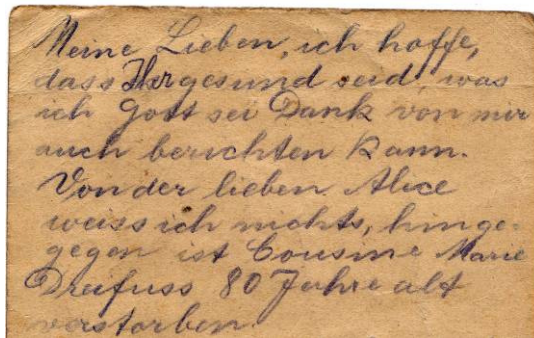 Meine Lieben, ich hoffe,
dass Ihr gesund seid, was
ich Gott sei Dank von mir
auch berichten kann.
Von der lieben Alice
weiss ich nichts, hinge-
gegen ist Cousine Marie
Dreifuss 80 Jahre alt
verstorben.